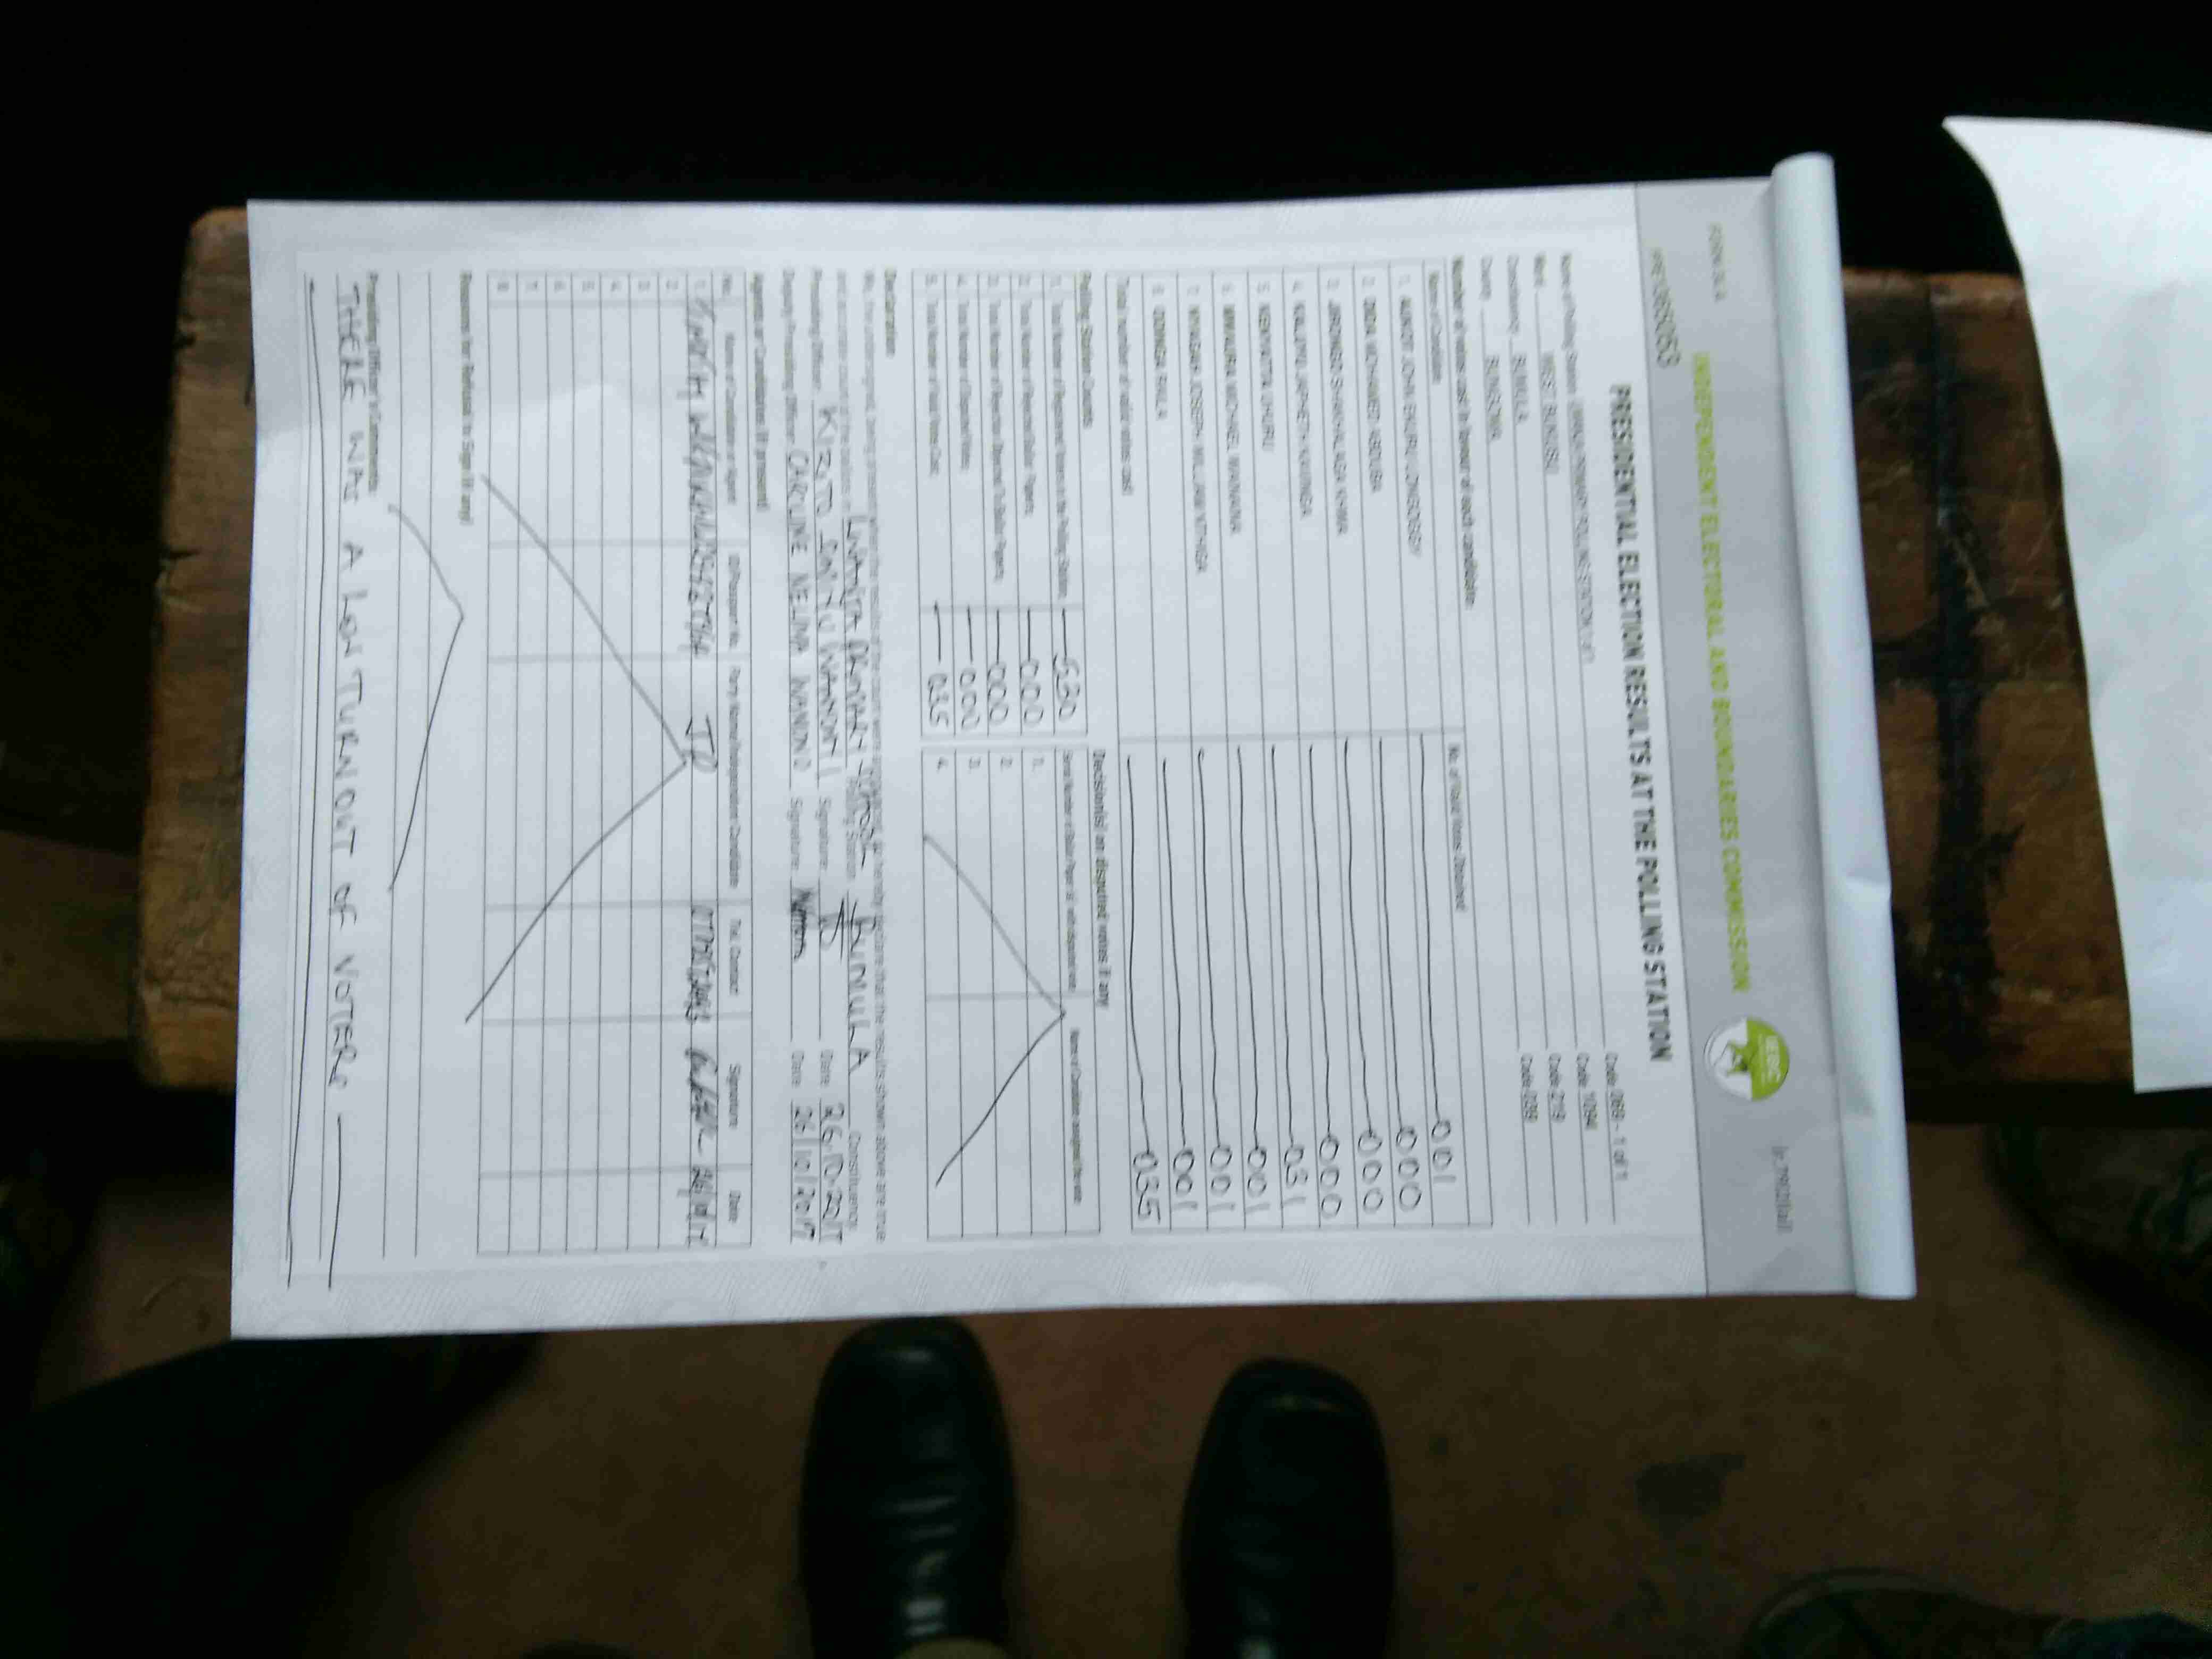 FORM 34 A
INDEPENDENT ELECTORAL AND BOUNDARIES COMMISSION
IEBC
PRESIDENTIAL ELECTION RESULTS AT THE POLLING STATION
Name of Polling Station PRIMARY POLLING STATION 1 of 1 Code 069 - 1 of 1
Ward WEST BUKUSU Code 1094
Constituency BUMULA Code 219
County BUNGOMA Code 039
Number of votes cast in favour of each candidate:
Name of Candidate No. of Valid Votes Obtained
1. AUKOT JOHN EKURU LONGOGGY 001
2. DIDA MOHAMED ABDUBA 000
3. JIRONGO SHAKHALAGA KHWA 000
4. KALUYU JAPHETH KAVINGA 000
5. KENYATTA UHURU 031
6. MWAURA MICHAEL WAINAINA 001
7. NYAGAH JOSEPH WILLIAM NTHIGA 001
8. ODINGA RAILA 001
Total number of valid votes cast 035
Polling Station Counts
1. Total Number of Registered Voters in the Polling Station 530
2. Total Number of Rejected Ballot Papers 000
3. Total Number of Rejection Objected To Ballot Papers 000
4. Total Number of Disputed Votes 000
5. Total Number of Valid Votes Cast 035
Decision(s) on disputed votes if any
Serial Number of Ballot Paper (s) with disputed vote Name of Candidate assigned the vote
1.
2.
3.
4.
Declaration
We, the undersigned, being present when the results of the count were announced, do hereby declare that the results shown above are true
and accurate count of the ballots in Polling Station BUMULA Constituency
Presiding Officer: Signature: Date: 26-10-2017
Deputy Presiding Officer: CAROLINE NELIMA WANJONO Signature: Date: 26/10/2017
Agents or Candidates (if present)
No. Name of Candidate or Agent ID/Passport No. Party Name/Independent Candidate Tel. Contact Signature Date
1. JP
2
3
4
5
6
7
8
Reasons for Refusal to Sign (if any)
Presiding Officer's Comments
THERE WAS A LOW TURNOUT OF VOTERS